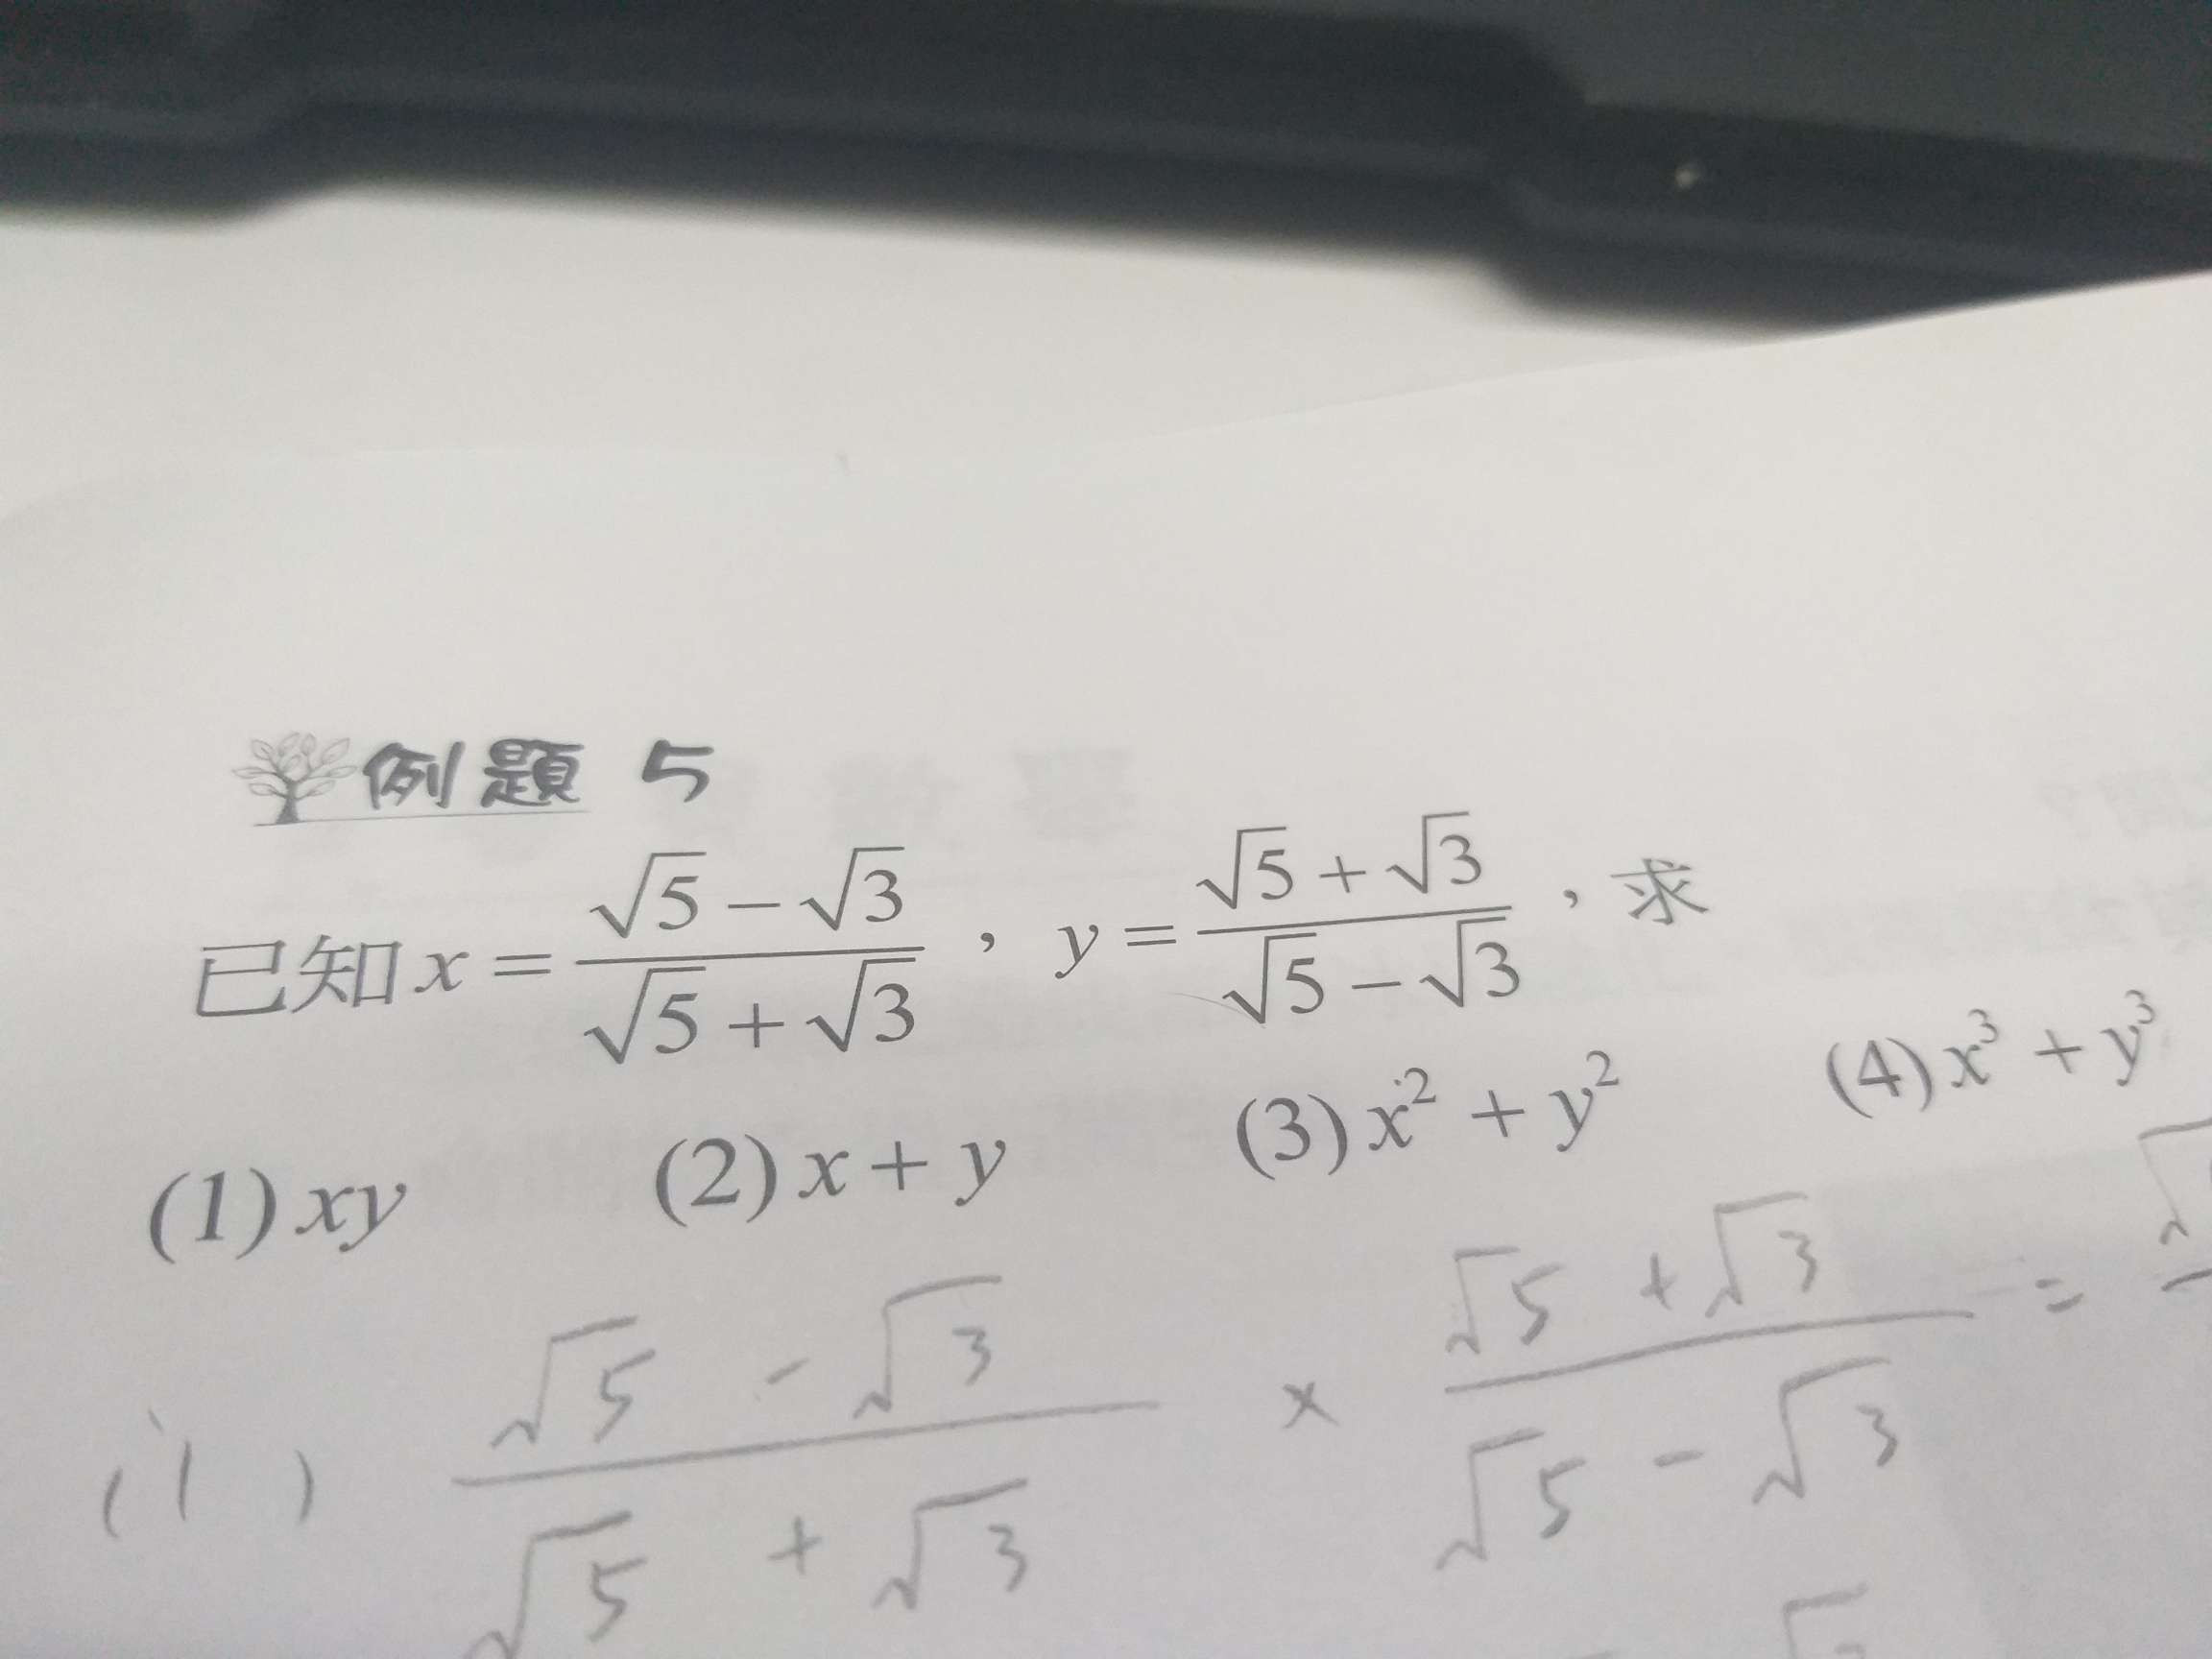 例題 5
已知 x = (√5 − √3)/(√5 + √3) ， y = (√5 + √3)/(√5 − √3) ，求
(1) xy (2) x + y (3) x² + y² (4) x³ + y³
(1) (√5 - √3)/(√5 + √3) × (√5 + √3)/(√5 - √3) =